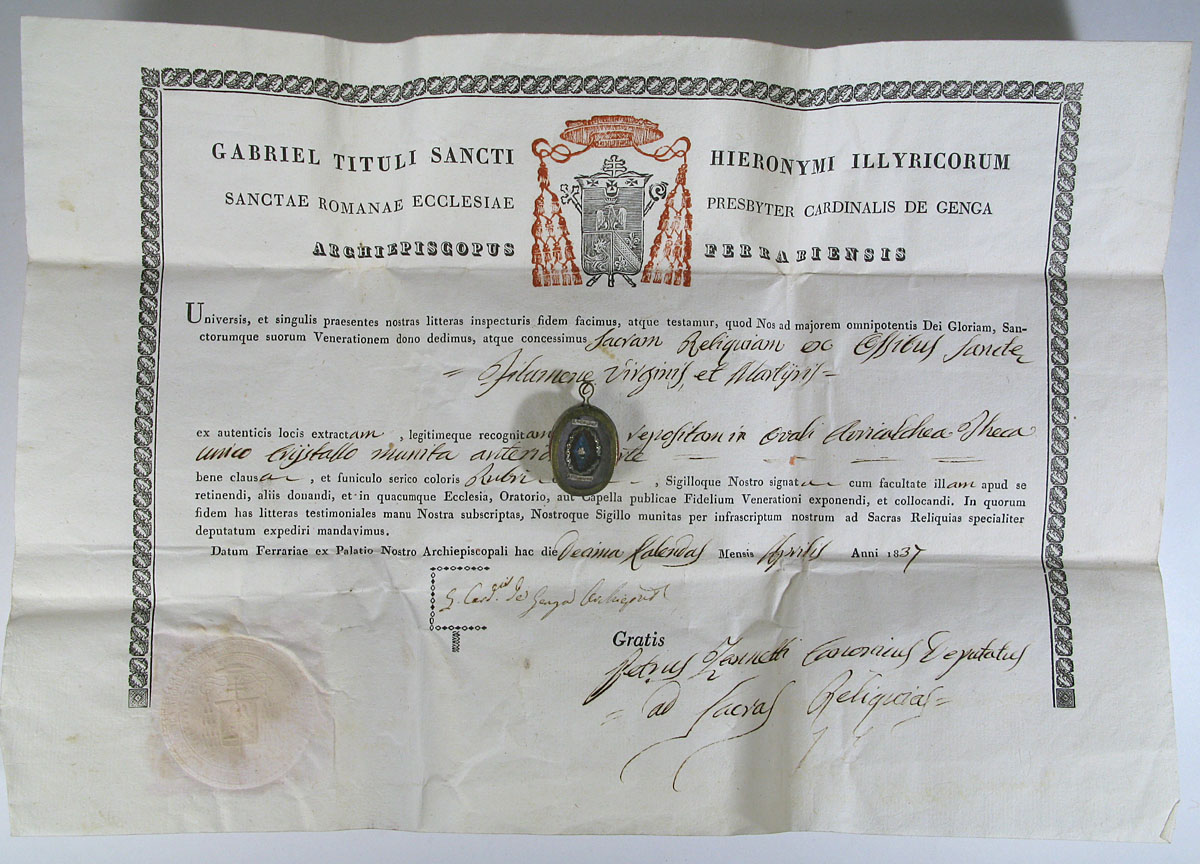 GABRIEL TITULI SANCTI HIERONYMI ILLYRICORUM
SANCTAE ROMANAE ECCLESIAE PRESBYTER CARDINALIS DE GENGA
ARCHIEPISCOPUS FERRARIENSIS
Universis, et singulis praesentes nostras litteras inspecturis fidem facimus, atque testamur, quod Nos ad majorem omnipotentis Dei Gloriam, San-
ctorumque suorum Venerationem dono dedimus, atque concessimus Sacram Reliquiam ex Ossibus Sancte
= Filumene Virginis, et Martyris =
ex autenticis locis extractam , legitimeque recognitam repositam in Ovali Auricalchea Theca
unico Crystallo munita
bene clausa , et funiculo serico coloris , Sigilloque Nostro signata cum facultate illam apud se
retinendi, aliis donandi, et in quacumque Ecclesia, Oratorio, aut Capella publicae Fidelium Venerationi exponendi, et collocandi. In quorum
fidem has litteras testimoniales manu Nostra subscriptas, Nostroque Sigillo munitas per infrascriptum nostrum ad Sacras Reliquias specialiter
deputatum expediri mandavimus.
Datum Ferrariae ex Palatio Nostro Archiepiscopali hac die Decima Kalendas Mensis Aprilis Anni 1837
G. Card. de Genga
Gratis
Petrus Zannetti Canonicus Deputatus
= ad Sacras Reliquias =